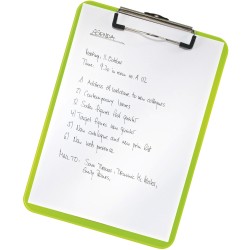 AGENDA:
Meeting: 5. October
Time: 9.30
1) Address of welcome to new colleagues
2) Contemporary issues
3) Sales figures last quarter
4) Target figures new quarter
5) New catalogue and new price list
6) New web presence
MAIL TO: